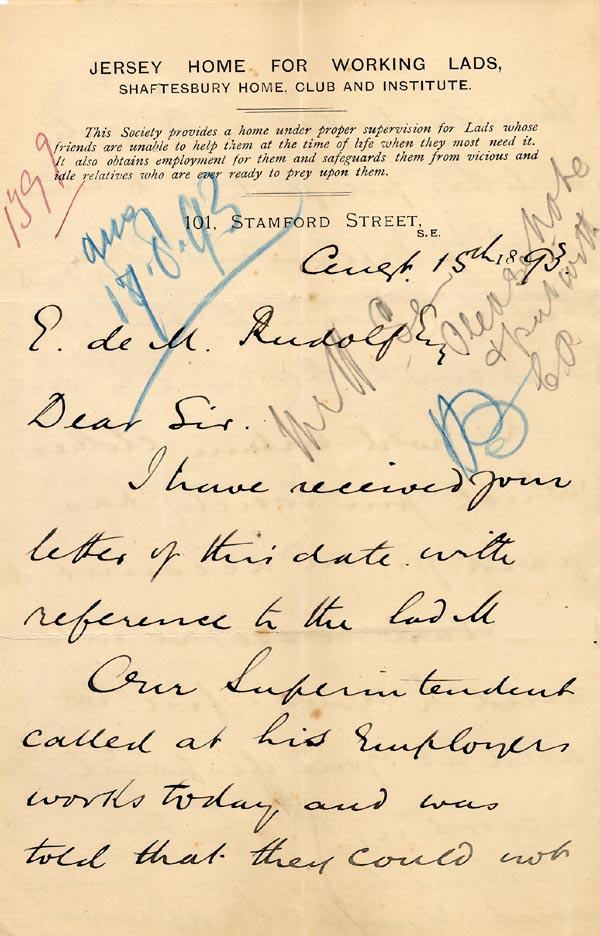 JERSEY HOME FOR WORKING LADS,
SHAFTESBURY HOME, CLUB AND INSTITUTE.
This Society provides a home under proper supervision for Lads whose
friends are unable to help them at the time of life when they most need it.
It also obtains employment for them and safeguards them from vicious and
idle relatives who are ever ready to prey upon them.
101, STAMFORD STREET,
S.E.
Augt. 15th 1893.
ans
17.8.93
Please note
& put with
C.P.
E. de M. Rudolf Esq
Dear Sir.
I have received your
letter of this date with
reference to the lad M
Our Superintendent
called at his Employers
works today and was
told that they could not